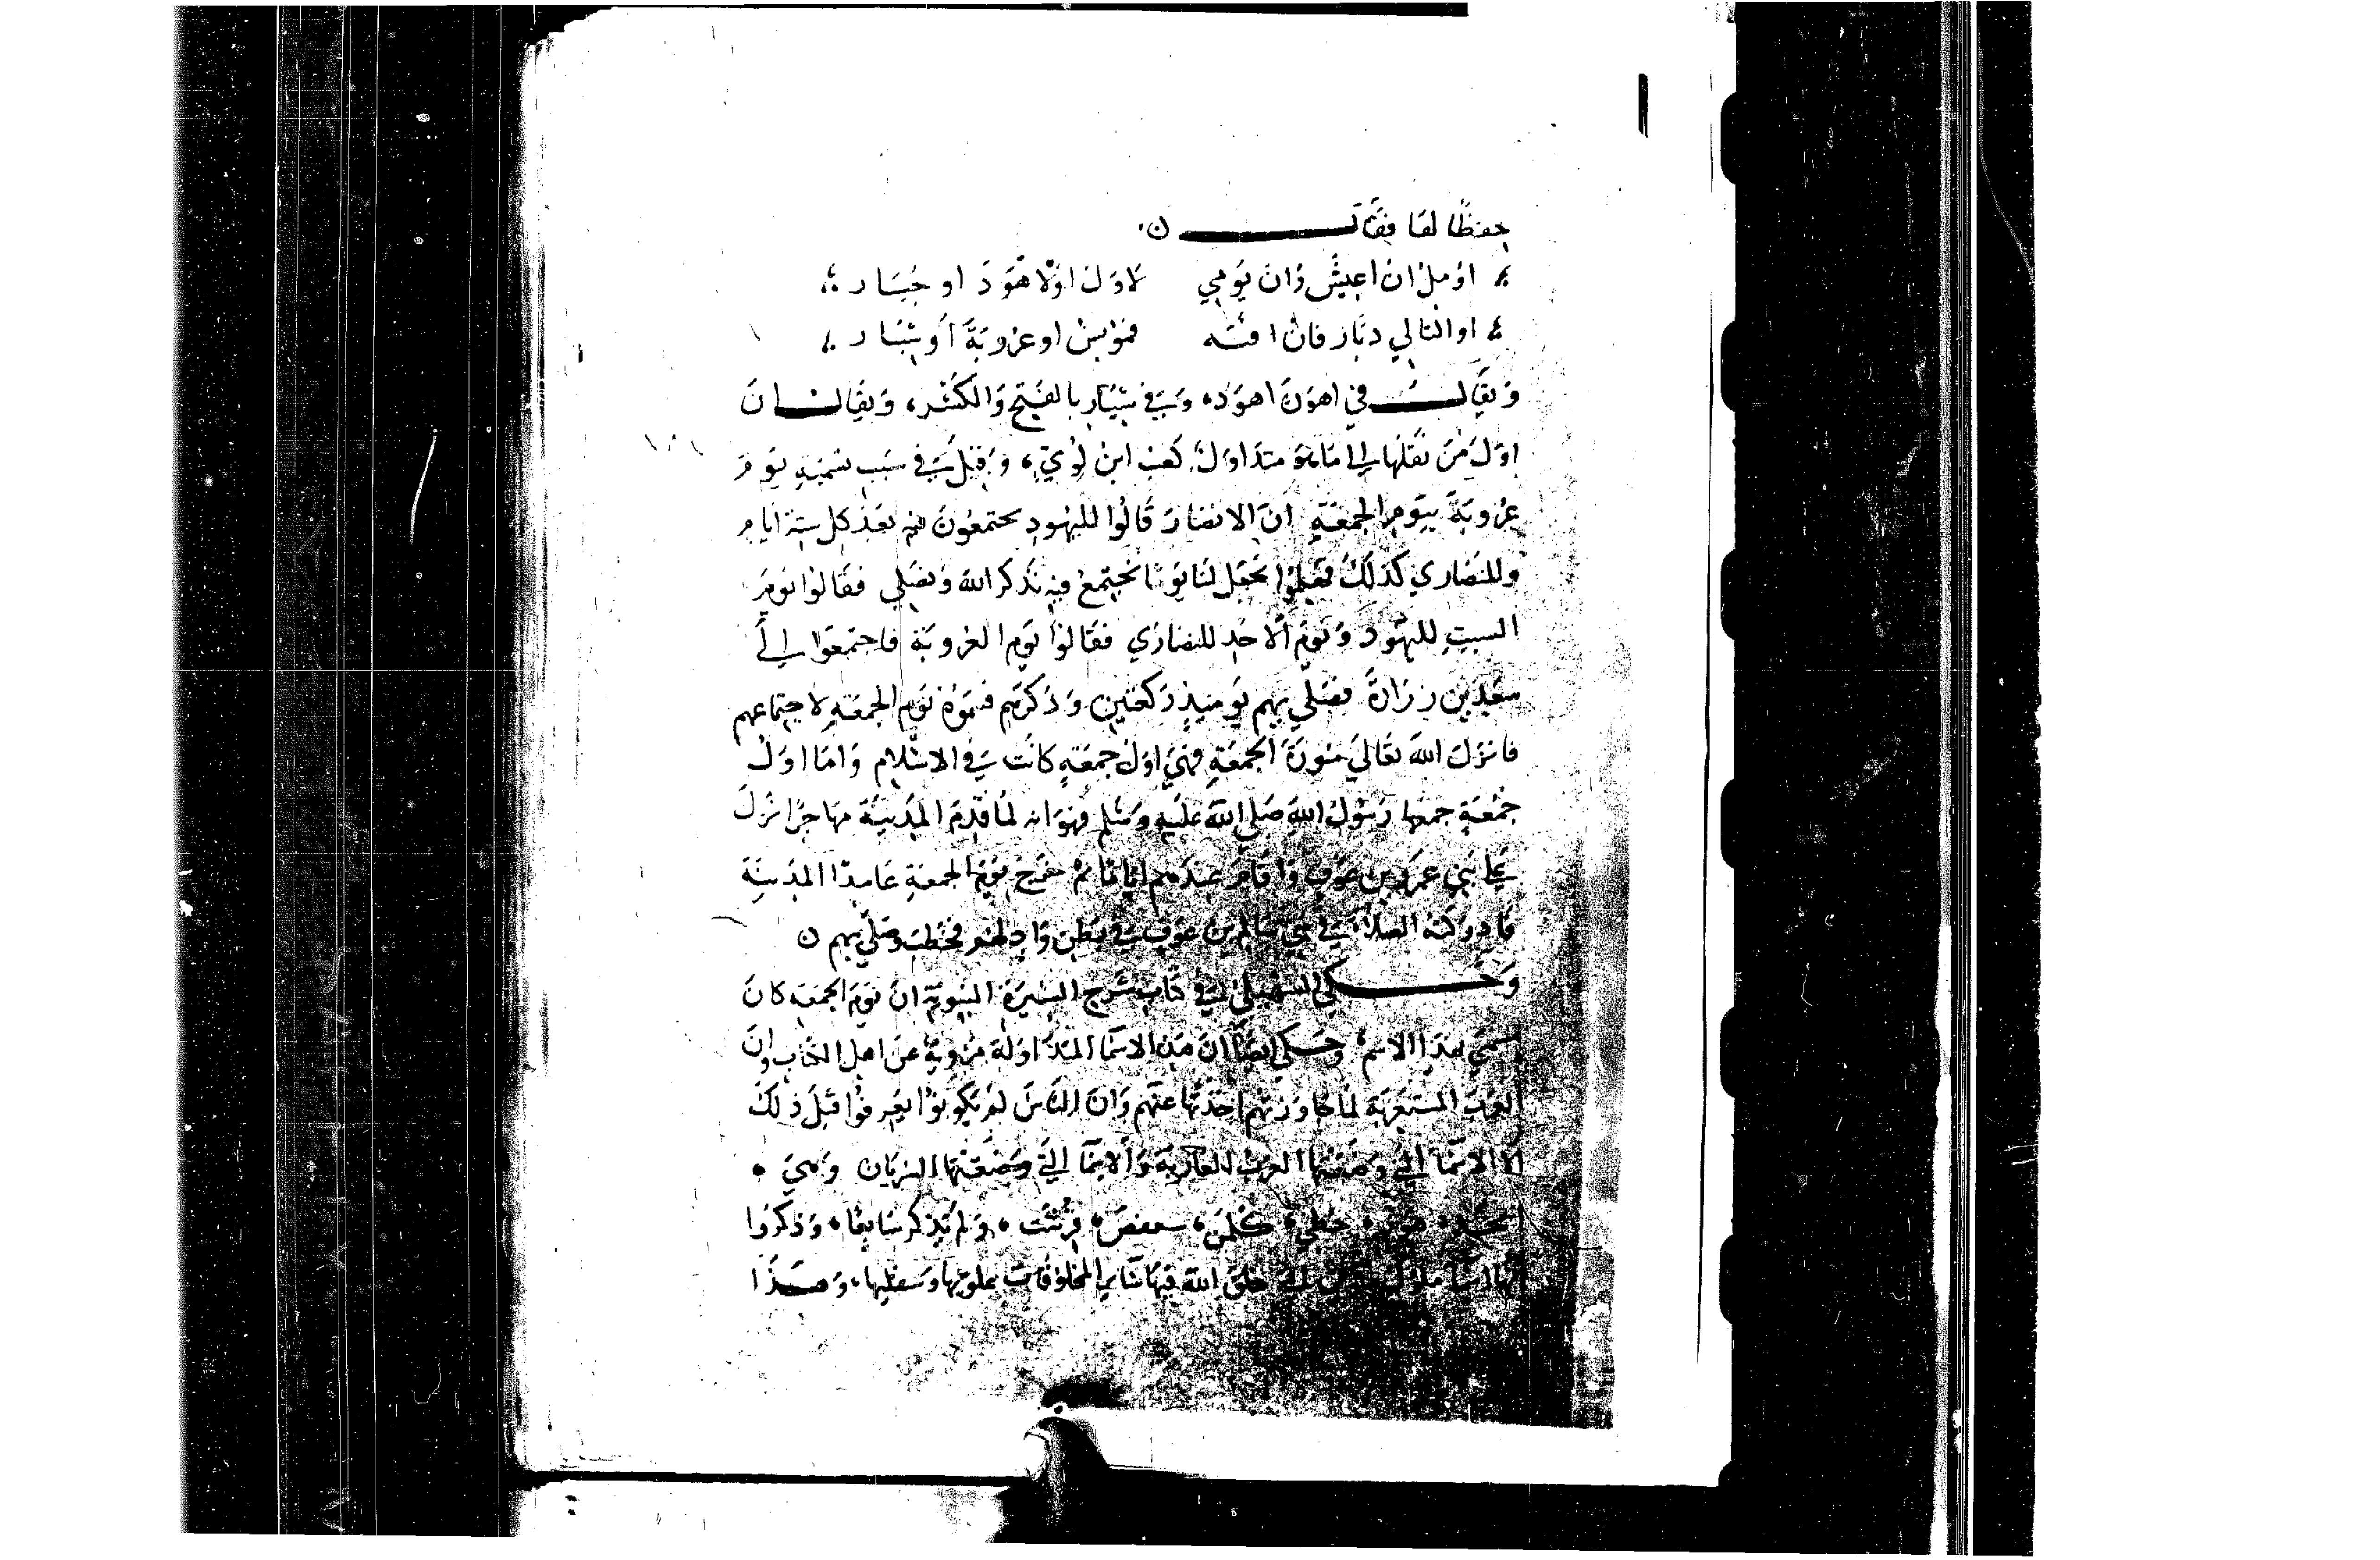 حفظا لها فقال ن
اؤمل ان اعيش وان يومي لاول او لاهود او جبار
او التالي دبار فان افته فمونس او عروبة او شيار
ويقال في اهون اهود، وفي شيار بالفتح والكسر، ويقال ان
اول من نقلها الى ما هو متداول كعب ابن لؤي، وقيل في سبب تسمية يوم
عروبة بيوم الجمعة ان الانصار قالوا لليهود يجتمعون فيه بعد كل ستة ايام
وللنصاري كذلك فهلموا نجعل لنا يوما نجتمع فيه نذكر الله ونصلي فقالوا يوم
السبت لليهود ويوم الاحد للنصاري فقالوا يوم العروبة فاجتمعوا الى
سعد بن زرارة فصلي بهم يوميذ ركعتين وذكرهم فسموه يوم الجمعة لاجتماعهم
فانزل الله تعالي سورة الجمعة فهي اول جمعة كانت في الاسلام واما اول
جمعة جمعها رسول الله صلي الله عليه وسلم فهو انه لما قدم المدينة مهاجرا نزل
على بني عمرو بن عوف واقام عندهم اياما ثم خرج يوم الجمعة عامدا المدينة
فادركته الصلاة في بني سالم بن عوف في بطن واد لهم فخطب وصلي بهم ن
وحكي السهيلي في كتاب شرح السيرة النبوية ان يوم الجمعة كان
يسمي بهذا الاسم، وحكي ايضا ان هذه الاسما المتداولة مروية عن اهل الكتاب وان
العرب المستعربة لما جاورتهم اخذتها عنهم وان الناس لم يكونوا يعرفوا قبل ذلك
الا الاسما التي وضعتها العرب العاربة والاسما التي وضعتها السريان وهي
ابجد، هوز، حطي، كلمن، سعفص، قرشت، ولم يذكر سابعا، وذكروا
خلق الله فيها ساير المخلوقات علويها وسفليها، وهذا